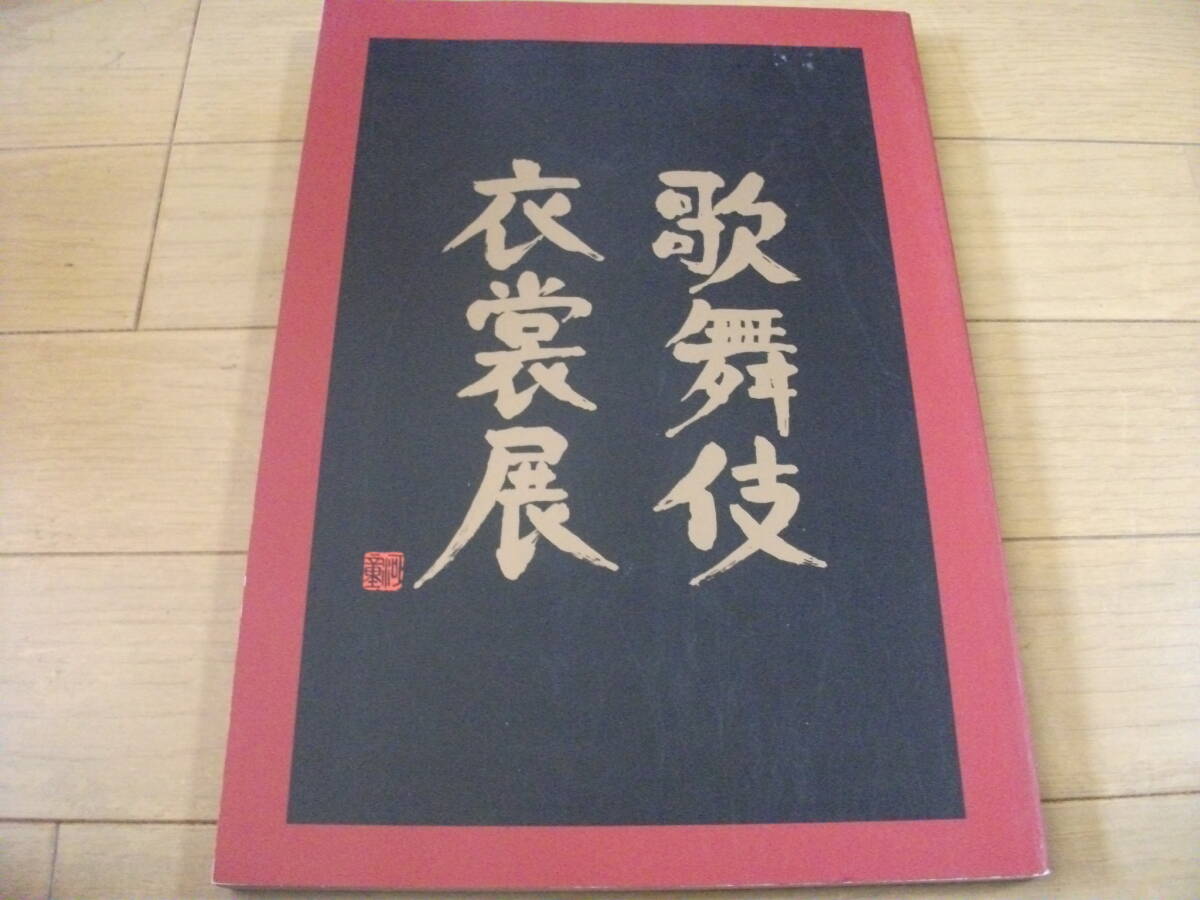 歌舞伎
衣裳展